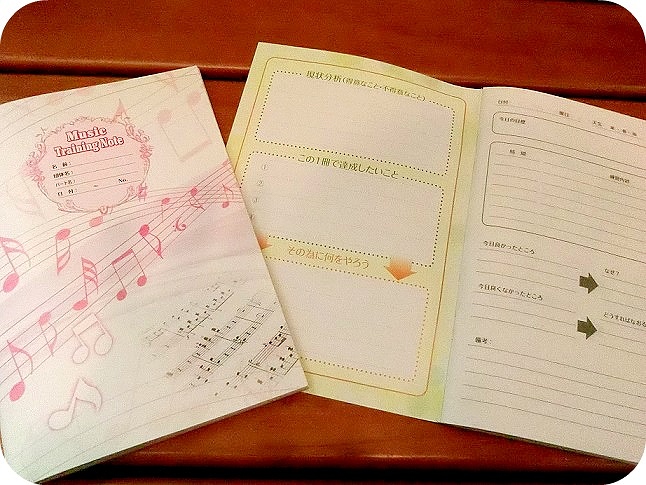 Music
Training Note
名 前:
団体名:
パート名:
日 付: ~ No.
現状分析(得意なこと・不得意なこと)
この1冊で達成したいこと
①
②
③
その為に何をやろう
日付 曜日 天気
今日の目標
時 間 練習内容
今日良かったところ
なぜ?
今日良くなかったところ
どうすればなおる
備考: